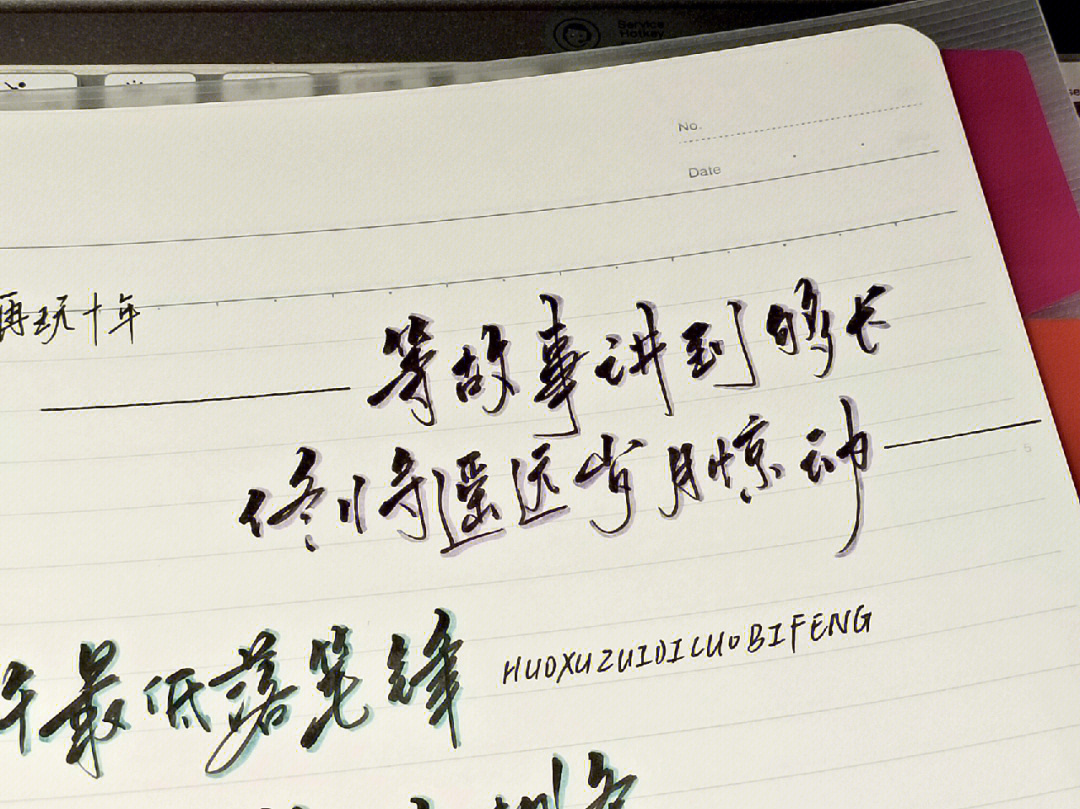 Service
Hotkey
No.
Date
再玩十年
等故事讲到够长
终将遥远岁月惊动
5
许最低落笔锋
HUOXUZUIDILUOBIFENG